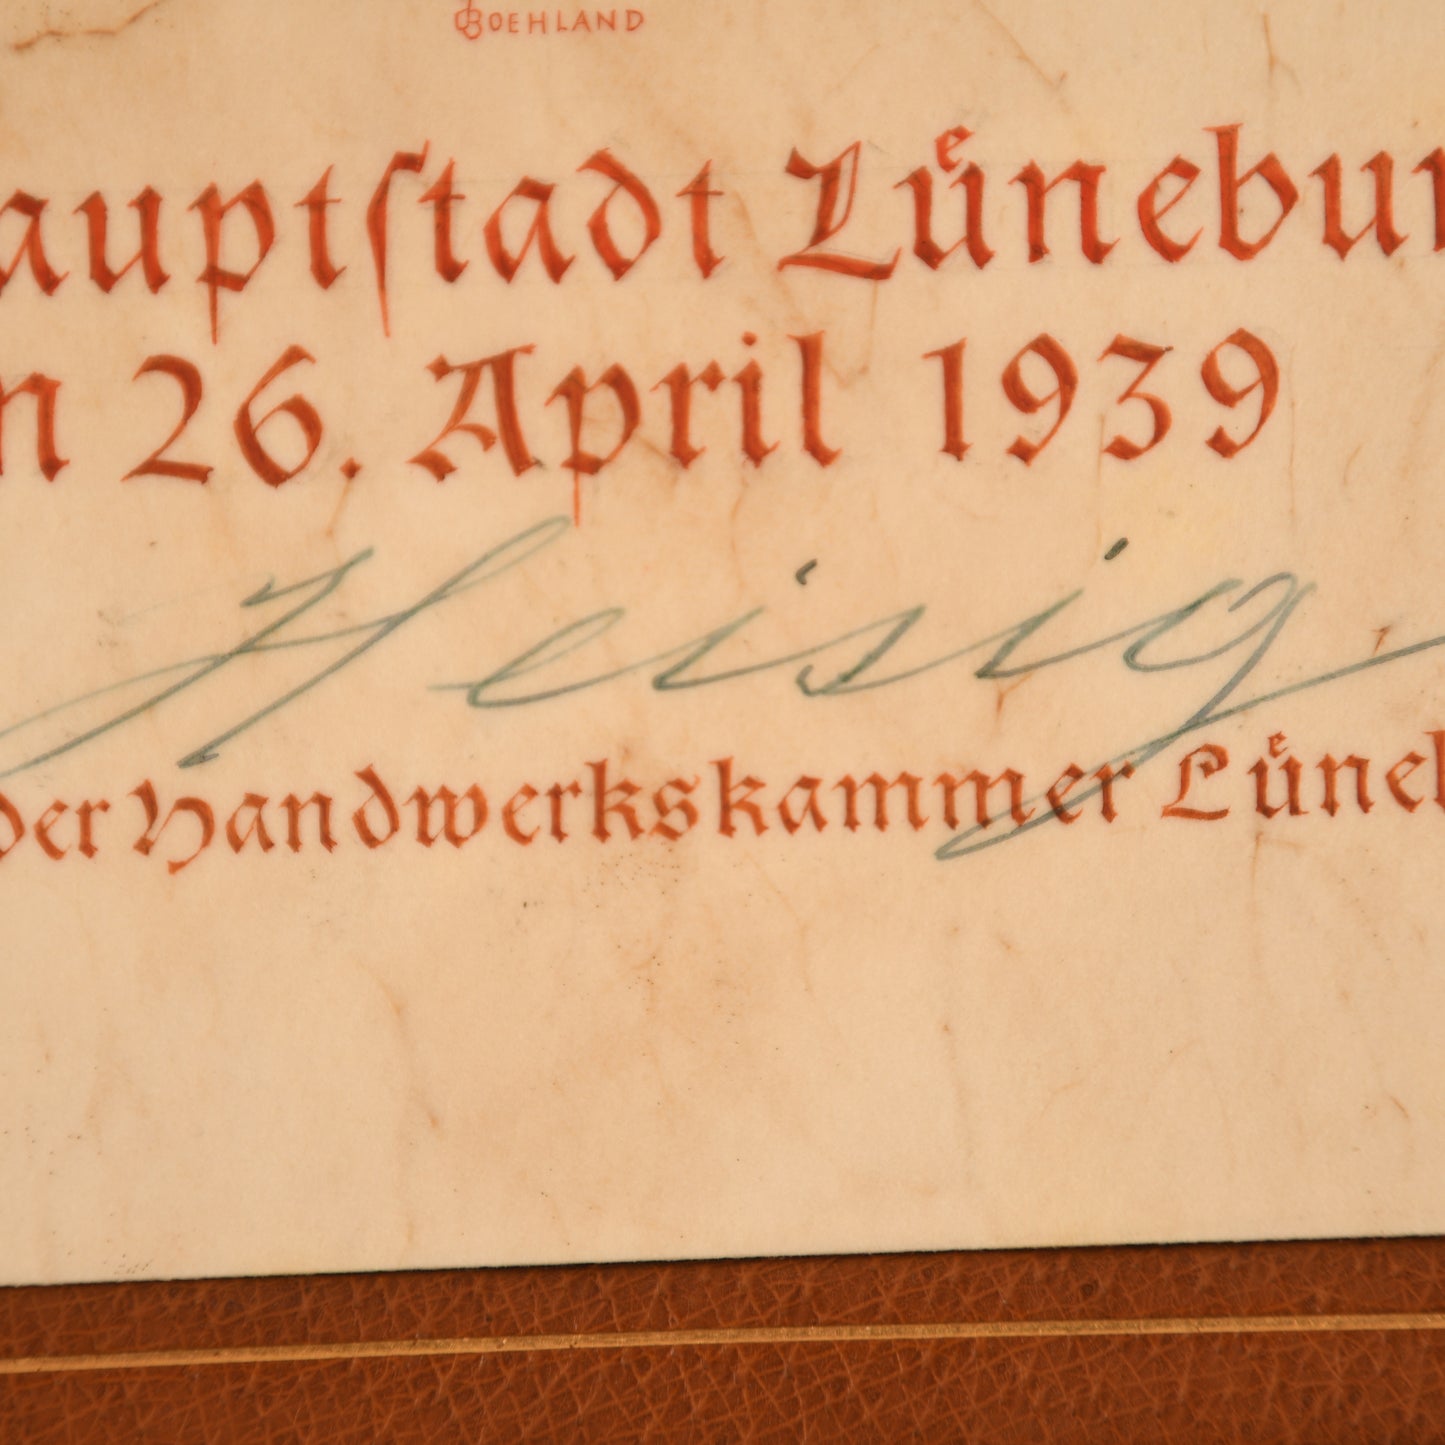 BOEHLAND
auptſtadt Lůnebur
n 26. April 1939
Heisig
der Handwerkskammer Lůneb